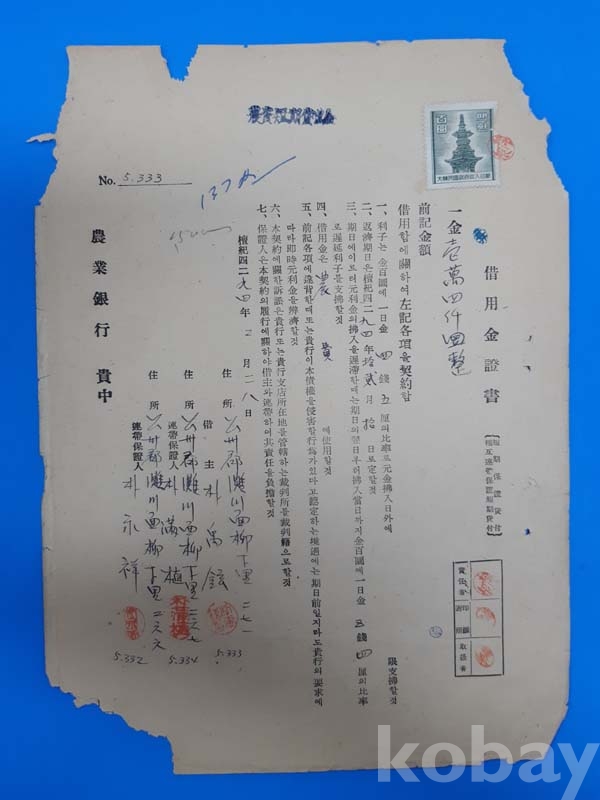 農資短期貸出金
No. 5.333
借用金證書
(短期保證貸付
相互連帶保證短期貸付)
一金壹萬四仟圓整
前記金額
借用함에關하여左記各項을契約함
一、利子는金百圜에一日金四錢五厘의比率로元金拂入日外에限支拂할것
二、返濟期日은檀紀四二九四年拾貳月拾日로定할것
三、期日에이르러元利金의拂入을遲滯한때는期日의翌日부터拂入當日까지金百圜에一日金五錢四厘의比率
로遲延利子를支拂할것
四、借用金은農資에使用할것
五、前記各項에違背한때또는貴行이本債權을侵害할行爲가있다고認定하는境遇에는期日前일지라도貴行의要求에
따라卽時元利金을辨濟할것
六、本契約에關한訴訟은貴行또는貴行支店所在地를管轄하는裁判所를裁判籍으로할것
七、保證人은本契約의履行에關하야借主와連帶하여其責任을負擔할것
檀紀四二九四年二月二八日
住所 公州郡灘川面柳下里二七一
借主 朴禹鉉
5.333
住所 公州郡灘川面柳下里二六七
連帶保證人 朴滿植
5.334
住所 公州郡灘川面柳下里二六六
連帶保證人 朴永祥
5.332
農業銀行 貴中
責任者
印鑑
取扱者
百圜
kobay